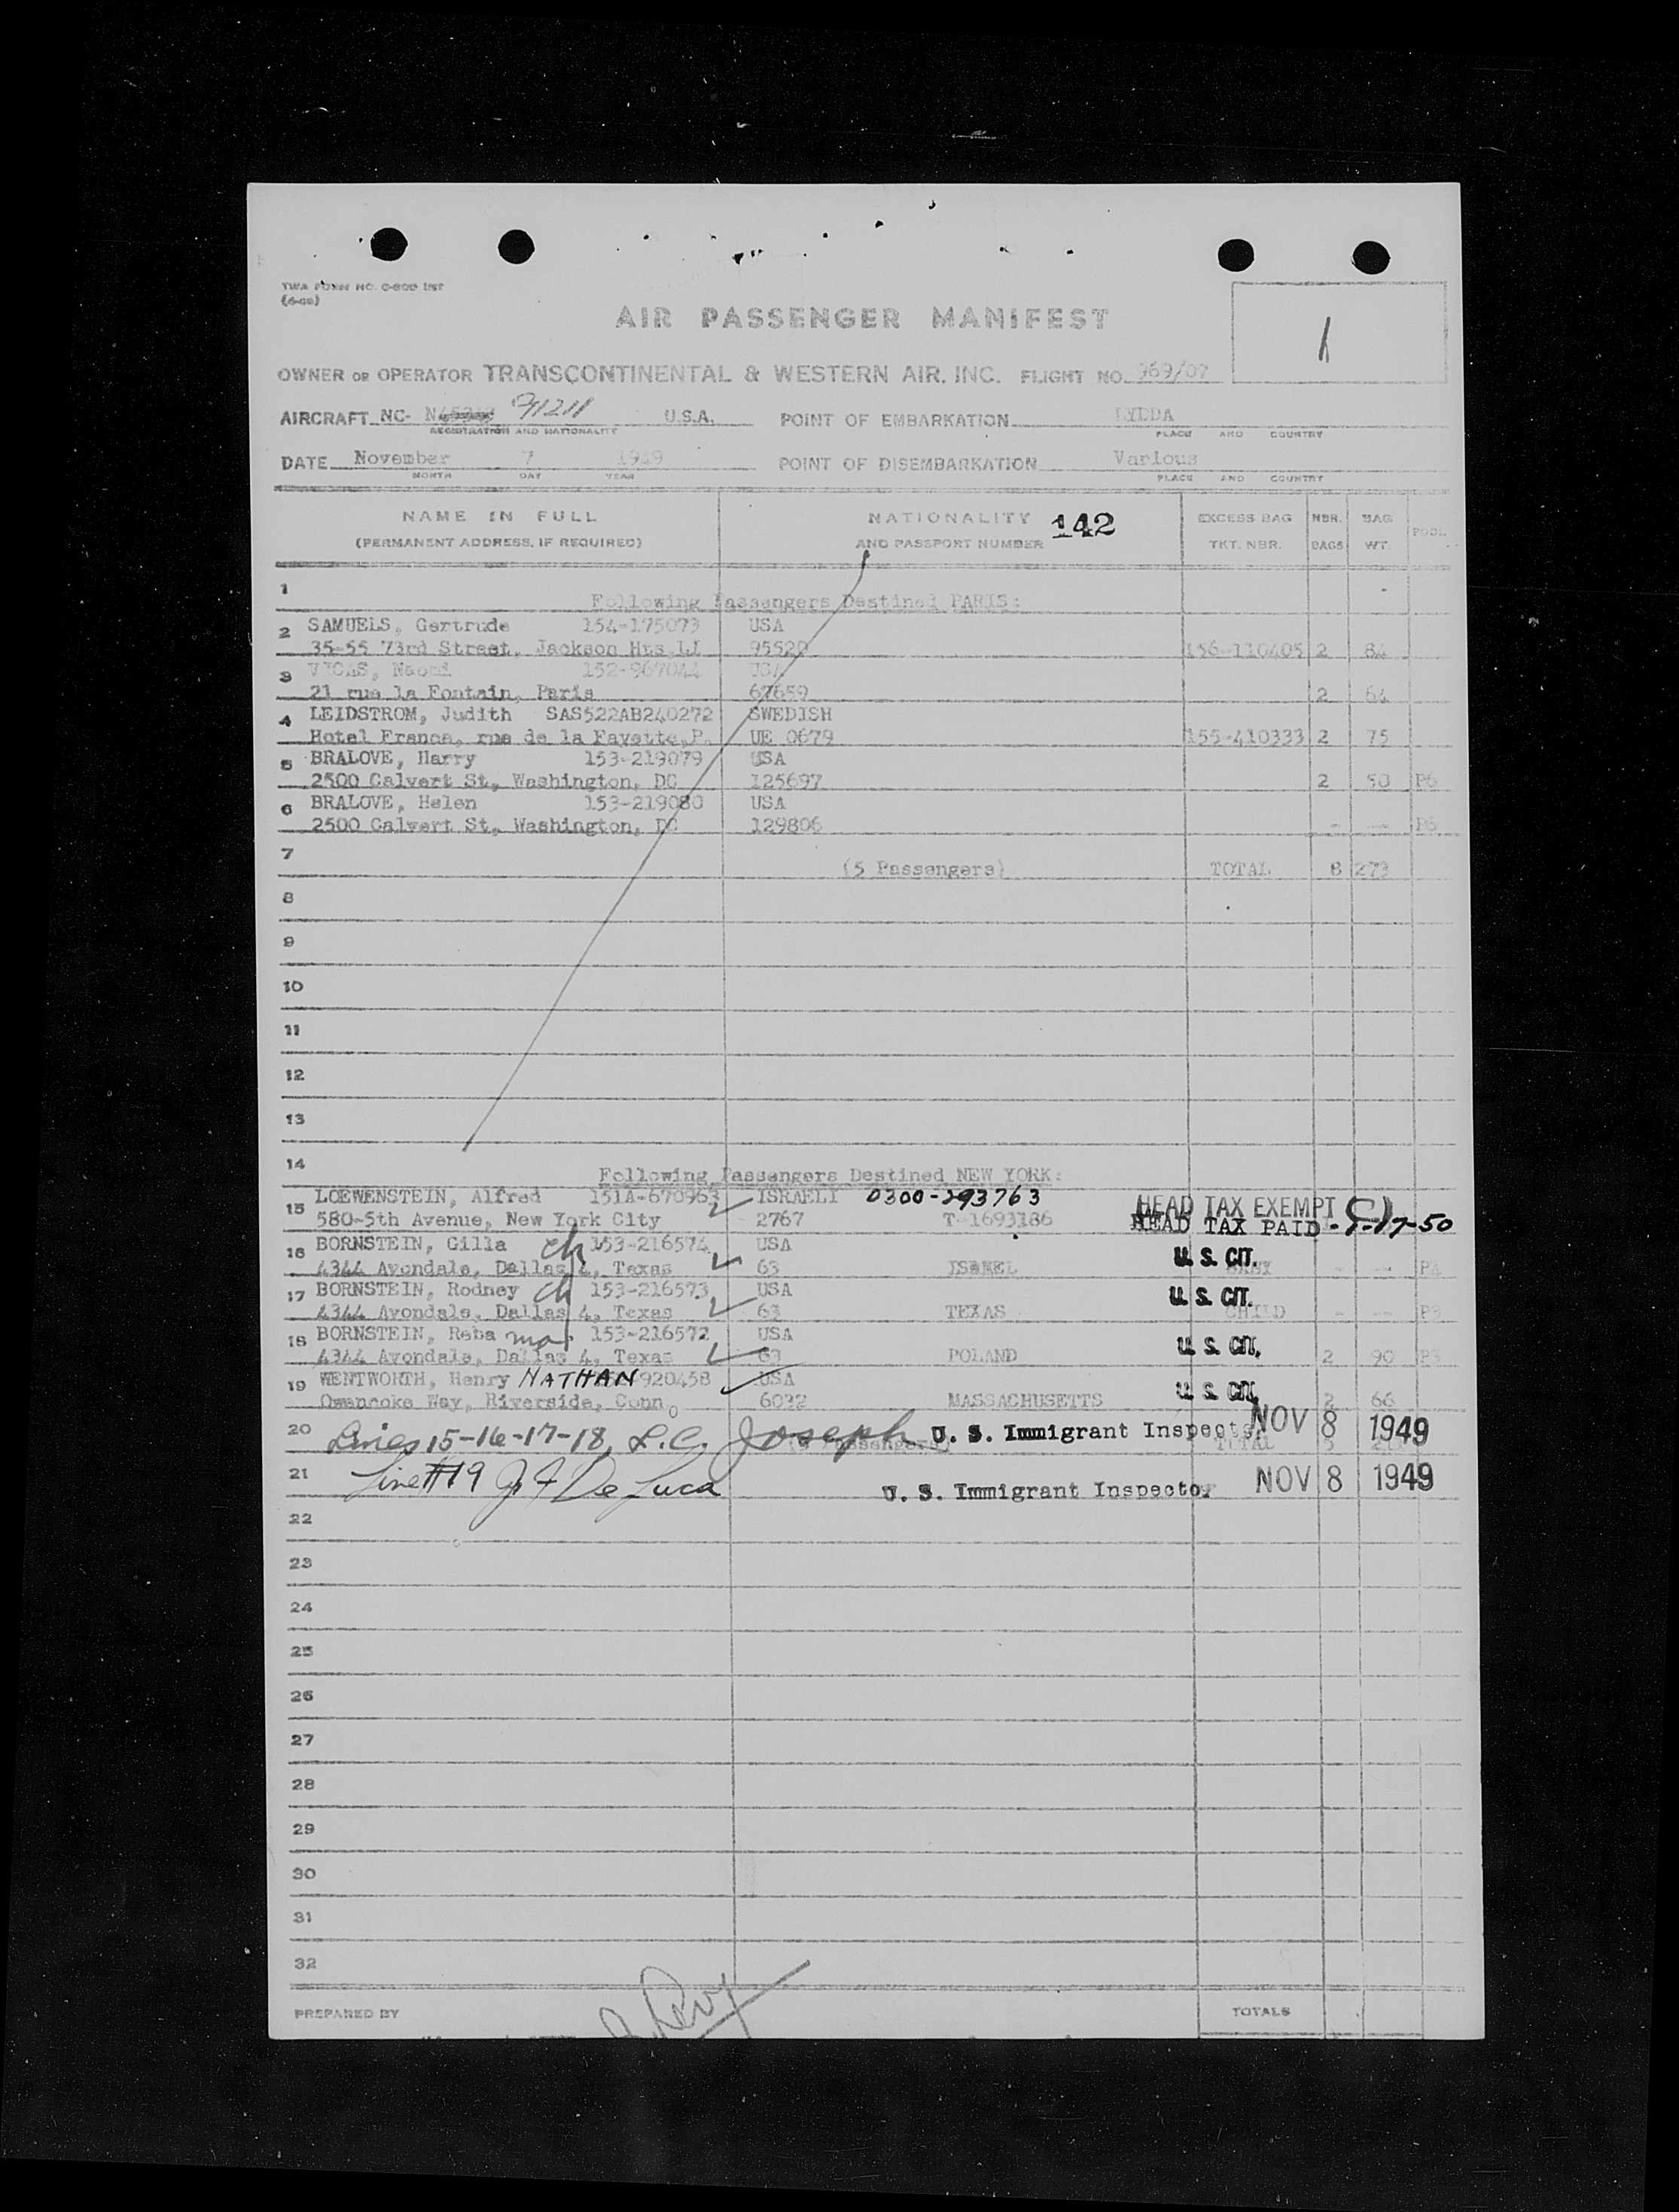 TWA FORM NO. O-800 INT
AIR PASSENGER MANIFEST
1
OWNER OR OPERATOR TRANSCONTINENTAL & WESTERN AIR, INC. FLIGHT NO. 969/07
AIRCRAFT NC- 91211 U.S.A. POINT OF EMBARKATION LYDDA
REGISTRATION AND NATIONALITY PLACE AND COUNTRY
DATE November 7 1949 POINT OF DISEMBARKATION Various
MONTH DAY YEAR PLACE AND COUNTRY
NAME IN FULL NATIONALITY 142 EXCESS BAG NBR. BAG POOL
(PERMANENT ADDRESS, IF REQUIRED) AND PASSPORT NUMBER TKT. NBR. BAGS WT.
1 Following Passengers Destined PARIS:
2 SAMUELS, Gertrude 154-175073 USA
35-55 73rd Street, Jackson Hts LI 95520 156-110405 2 84
3 Naomi 152-967044 USA
21 rue la Fontain, Paris 67659 2 64
4 LEIDSTROM, Judith SAS522AB240272 SWEDISH
Hotel France, rue de la Fayette, P. UE 0679 155-410333 2 75
5 BRALOVE, Harry 153-219079 USA
2500 Calvert St, Washington, DC 125697 2 50 P6
6 BRALOVE, Helen 153-219080 USA
2500 Calvert St, Washington, DC 129806 - -- P6
7 (5 Passengers) TOTAL 8 273
8
9
10
11
12
13
14 Following Passengers Destined NEW YORK:
15 LOEWENSTEIN, Alfred 151A-670963 ISRAELI 0300-293763 HEAD TAX EXEMPT
580-5th Avenue, New York City 2767 T-1693186 HEAD TAX PAID - 1-17-50
16 BORNSTEIN, Gilla ch 153-216574 USA U. S. CIT.
4344 Avondale, Dallas 4, Texas 63 ISRAEL BABY - -- P4
17 BORNSTEIN, Rodney ch 153-216573 USA U. S. CIT.
4344 Avondale, Dallas 4, Texas 63 TEXAS CHILD - -- P3
18 BORNSTEIN, Reba ma 153-216572 USA U. S. CIT.
4344 Avondale, Dallas 4, Texas 63 POLAND 2 90 P3
19 WENTWORTH, Henry NATHAN 920458 USA U. S. CIT.
Owenoke Way, Riverside, Conn. 6032 MASSACHUSETTS 2 66
20 Lines 15-16-17-18, L.C. Joseph U. S. Immigrant Inspector NOV 8 1949
TOTAL
21 Line #19 J F De Luca U. S. Immigrant Inspector NOV 8 1949
22
23
24
25
26
27
28
29
30
31
32
PREPARED BY Levy TOTALS